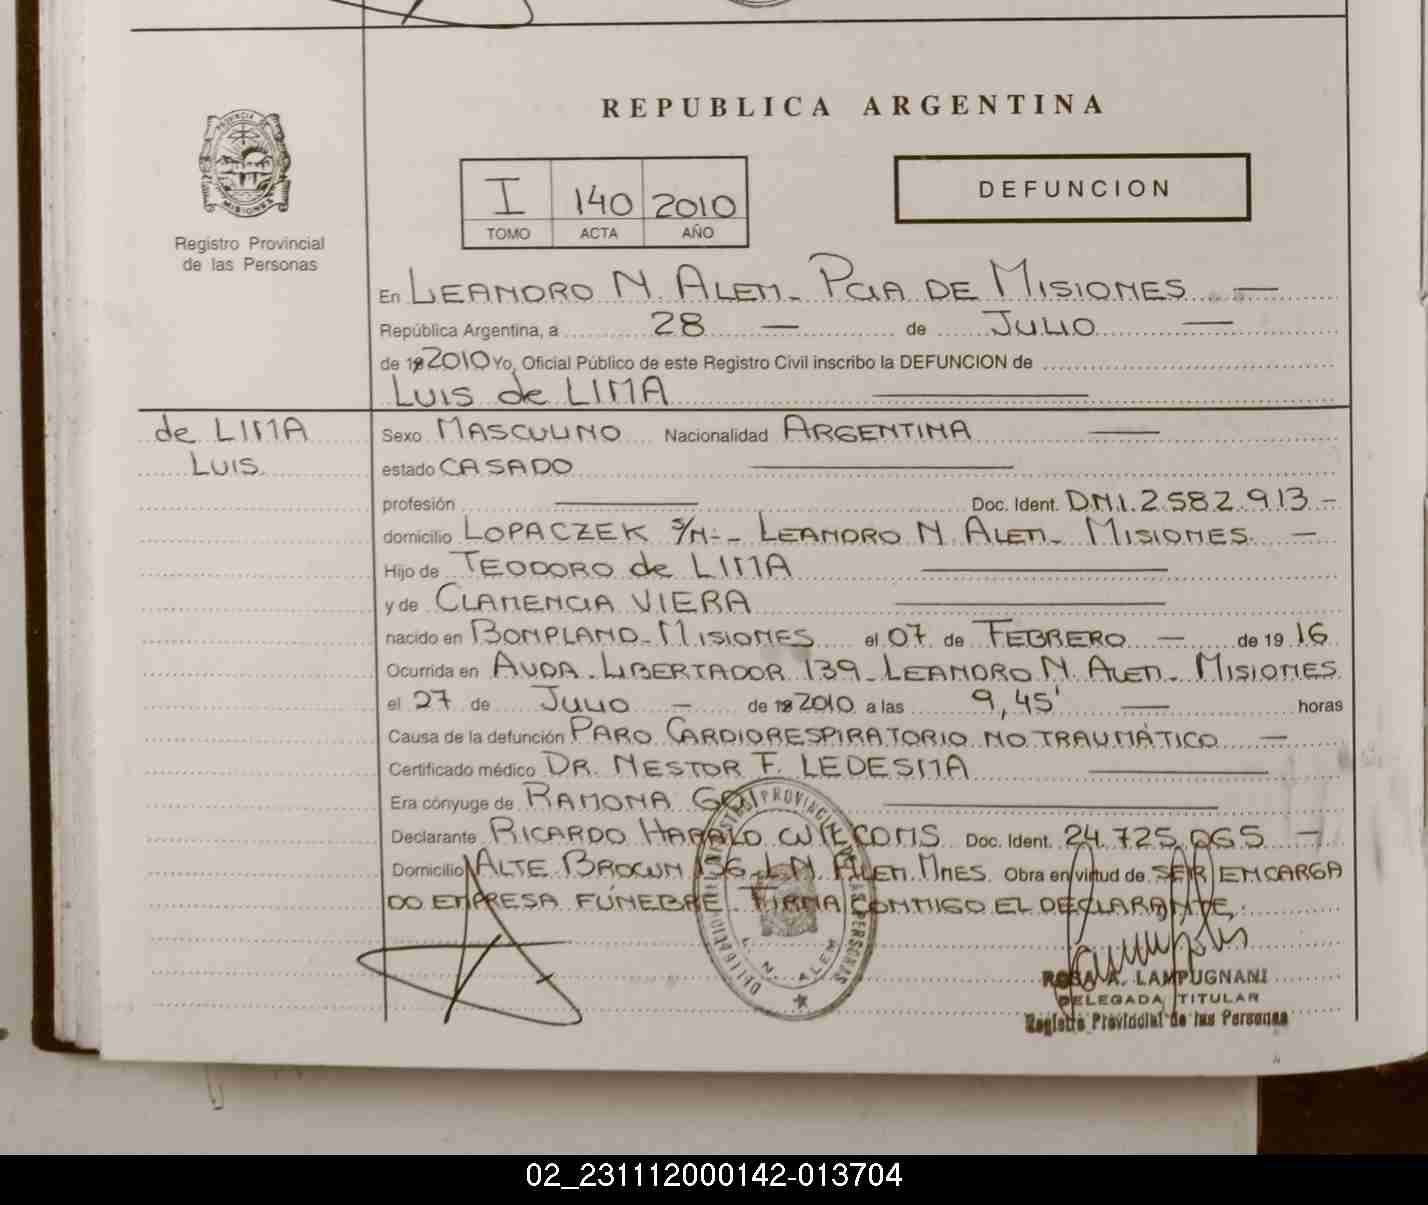 REPUBLICA ARGENTINA
PROVINCIA DE
MISIONES
Registro Provincial
de las Personas
I 140 2010
TOMO ACTA AÑO
DEFUNCION
En LEANDRO N. ALEM - PCIA DE MISIONES —
República Argentina, a 28 — de JULIO —
de 192010 Yo, Oficial Público de este Registro Civil inscribo la DEFUNCION de
LUIS de LIMA
de LIMA
LUIS
Sexo MASCULINO Nacionalidad ARGENTINA —
estado CASADO —
profesión — Doc. Ident. D.N.I. 2.582.913.-
domicilio LOPACZEK S/N.- LEANDRO N. ALEM - MISIONES —
Hijo de TEODORO de LIMA —
y de CLAMENCIA VIERA —
nacido en BONPLAND - MISIONES el 07 de FEBRERO — de 19 16
Ocurrida en AVDA. LIBERTADOR 139 - LEANDRO N. ALEM - MISIONES
el 27 de JULIO — de 192010 a las 9,45' — horas
Causa de la defunción PARO CARDIORESPIRATORIO NO TRAUMÁTICO —
Certificado médico DR. NESTOR F. LEDESMA —
Era cónyuge de RAMONA —
Declarante RICARDO HARALD Doc. Ident. 24.725.065 —
Domicilio ALTE BROWN 156 - L.N. ALEM. MNES. Obra en virtud de SER ENCARGA
DO EMPRESA FÚNEBRE. FIRMA CONMIGO EL DECLARANTE.
L. N. ALEM
ROSA A. LAMPUGNANI
DELEGADA TITULAR
Registro Provincial de las Personas
02_231112000142-013704